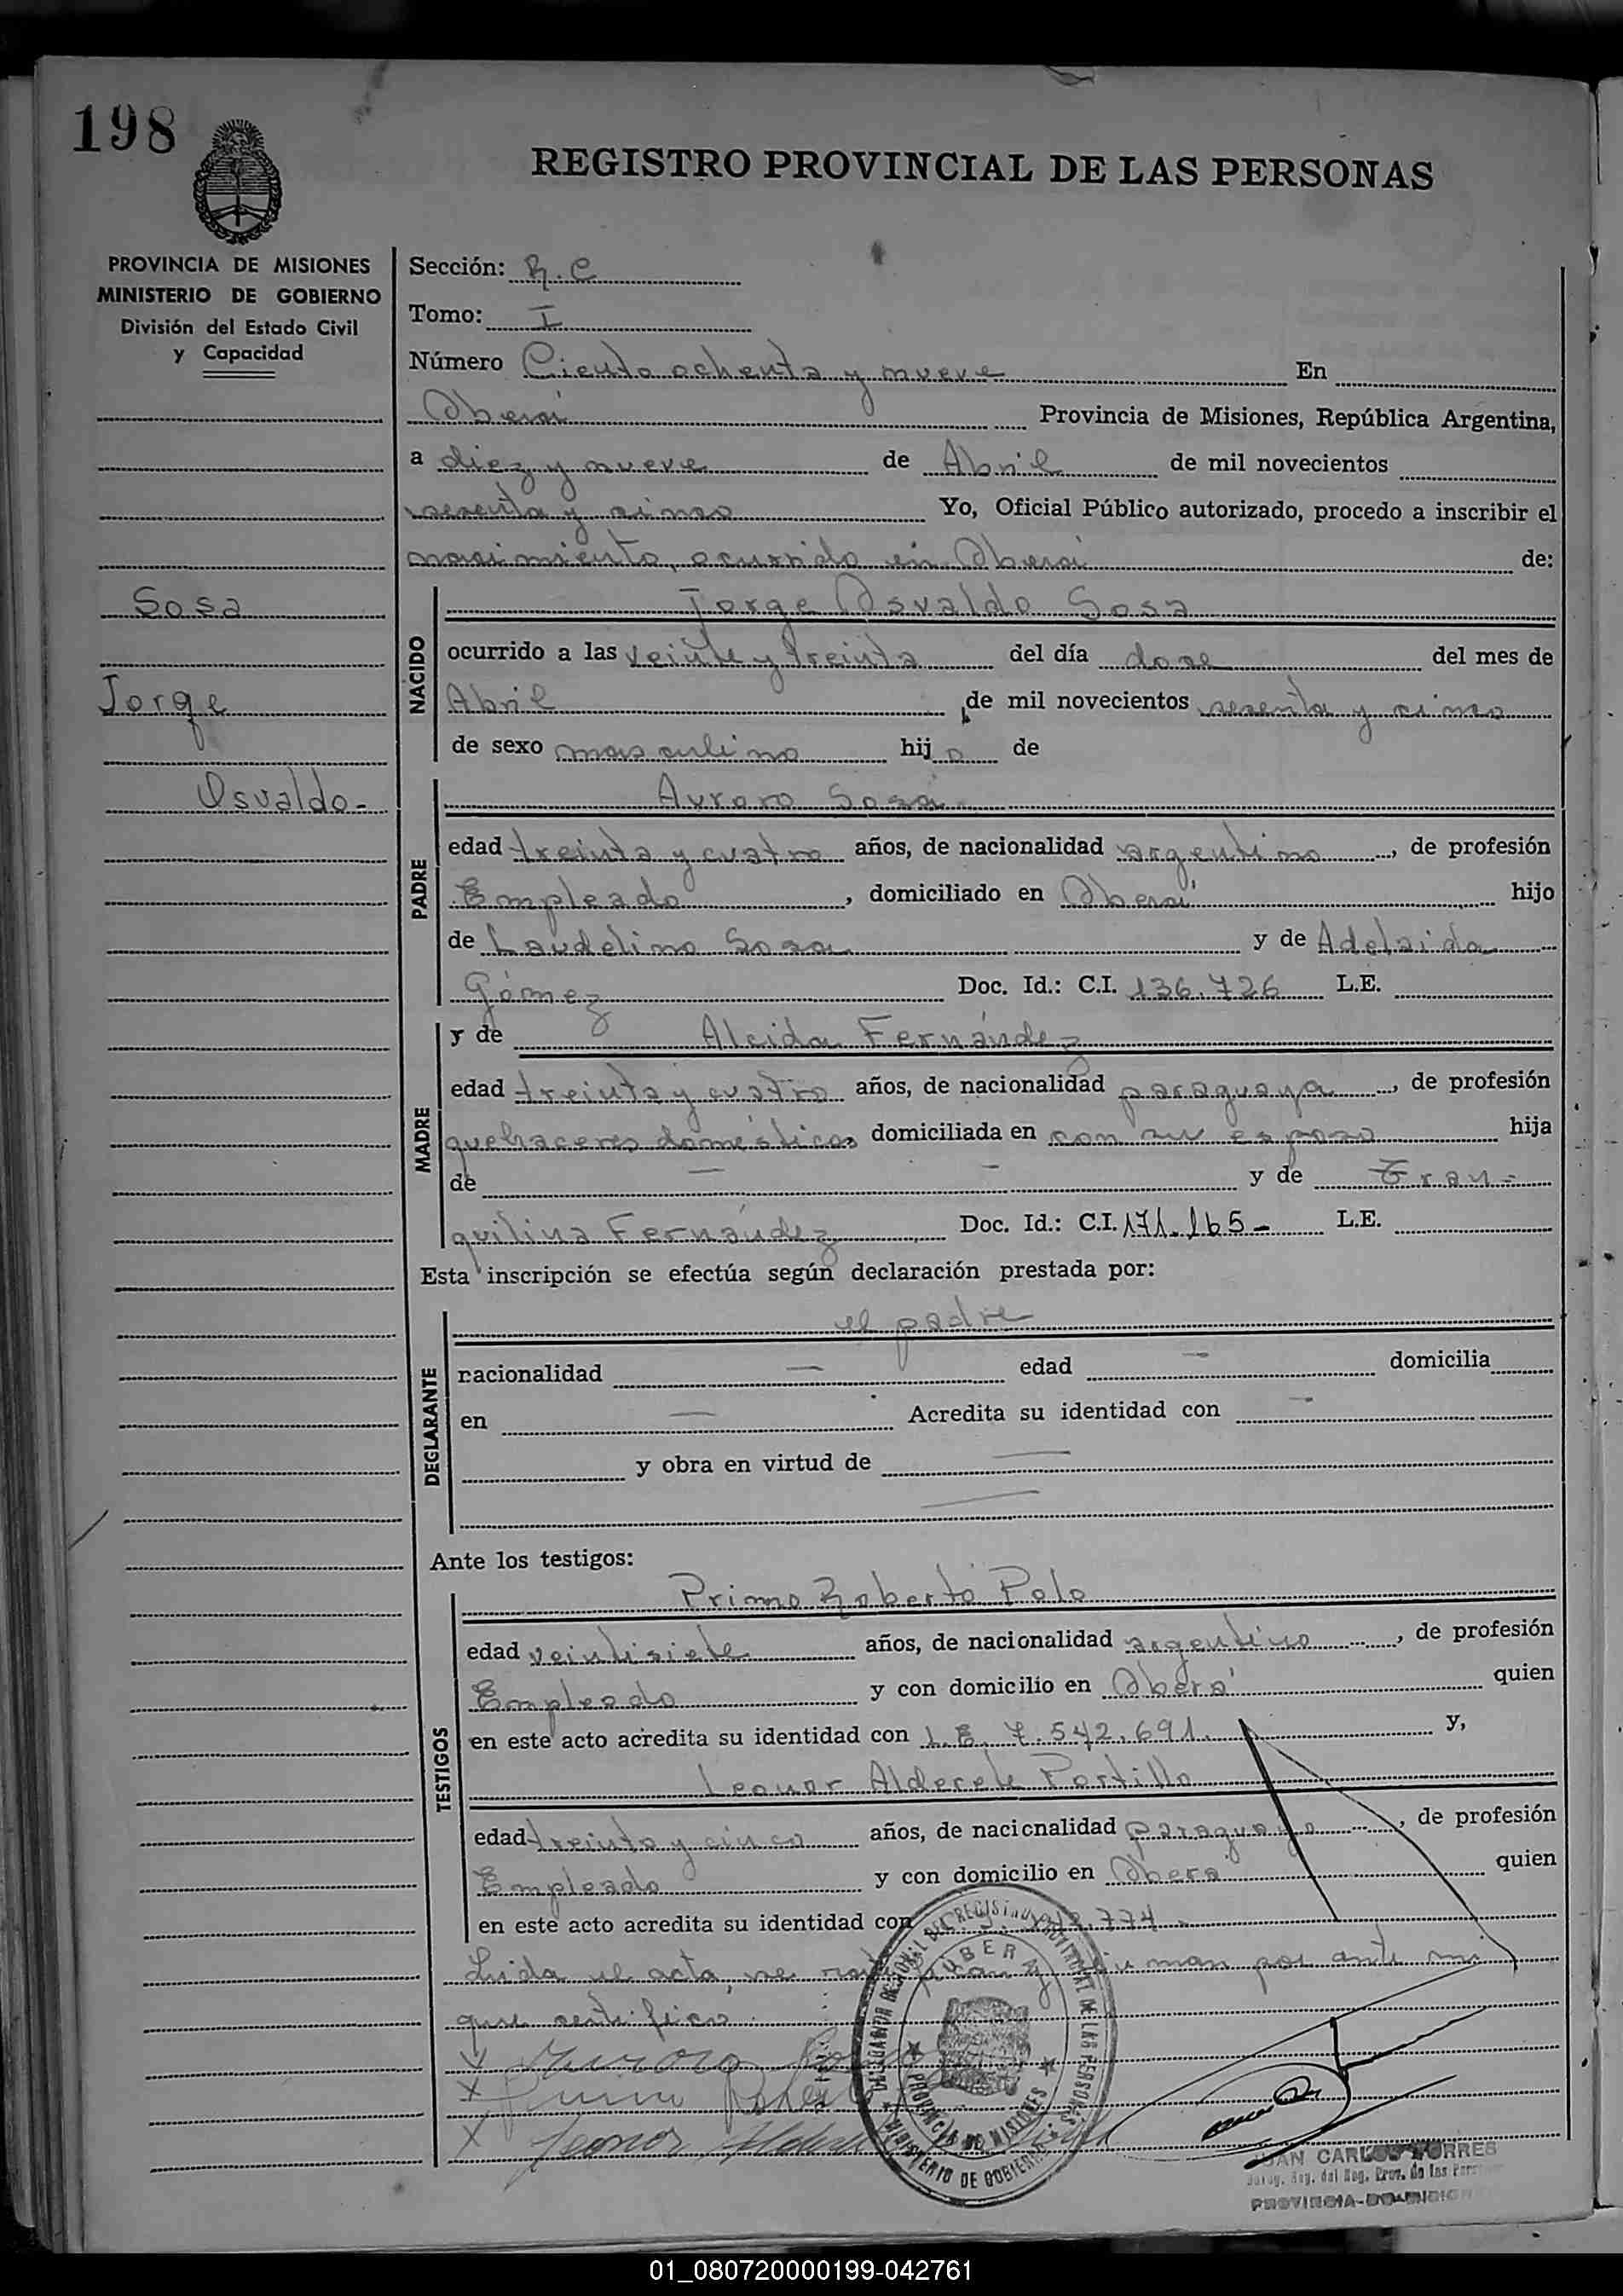 198
REGISTRO PROVINCIAL DE LAS PERSONAS
PROVINCIA DE MISIONES
MINISTERIO DE GOBIERNO
División del Estado Civil
y Capacidad
Sosa
Jorge
Osvaldo-
Sección: R.C
Tomo: I
Número Ciento ochenta y nueve En
Oberá Provincia de Misiones, República Argentina,
a diez y nueve de Abril de mil novecientos
sesenta y cinco Yo, Oficial Público autorizado, procedo a inscribir el
nacimiento, ocurrido en Oberá de:
NACIDO
Jorge Osvaldo Sosa
ocurrido a las veinte y treinta del día doce del mes de
Abril de mil novecientos sesenta y cinco
de sexo masculino hijo de
PADRE
Auroro Sosa
edad treinta y cuatro años, de nacionalidad argentino, de profesión
Empleado, domiciliado en Oberá hijo
de Laudelino Sosa y de Adelaida
Gómez Doc. Id.: C.I. 136.726 L.E.
MADRE
y de Alcida Fernández
edad treinta y cuatro años, de nacionalidad paraguaya, de profesión
quehaceres domésticos domiciliada en con su esposo hija
de — - y de Tran-
quilina Fernández Doc. Id.: C.I. 171.165- L.E.
Esta inscripción se efectúa según declaración prestada por:
DECLARANTE
el padre
nacionalidad — edad - domicilia
en — Acredita su identidad con -
y obra en virtud de —
Ante los testigos:
TESTIGOS
Primo Roberto Polo
edad veintisiete años, de nacionalidad argentino, de profesión
Empleado y con domicilio en Oberá quien
en este acto acredita su identidad con L.E. 7.542.691. y,
Leonor Alderete Portillo
edad treinta y cinco años, de nacionalidad paraguayo, de profesión
Empleado y con domicilio en Oberá quien
en este acto acredita su identidad con 774-
Leida el acta, se ratifican y firman por ante mi
que certifico.
X Auroro Sosa
X Primo Roberto
X Leonor Alderete
DELEGACION REGIONAL DEL REGISTRO PROVINCIAL DE LAS PERSONAS
OBERA
PROVINCIA DE MISIONES
MINISTERIO DE GOBIERNO
JUAN CARLOS TORRES
Reg. del Reg. Prov. de las
PROVINCIA DE
01_080720000199-042761